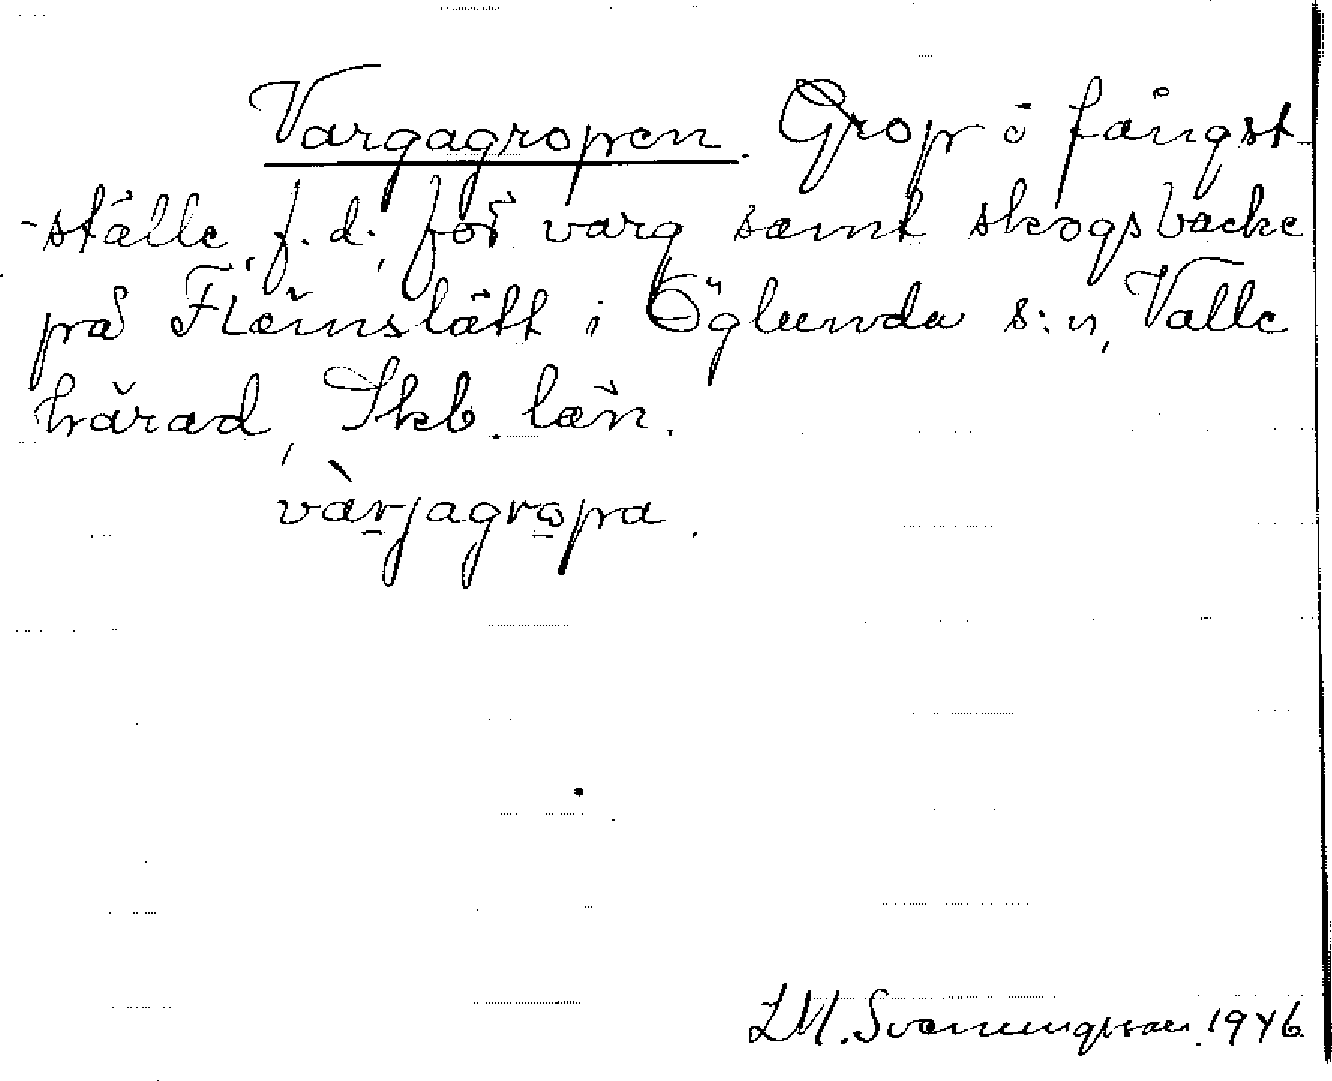 Vargagropen. Grop o fångst-
-ställe, f. d., för varg samt skogsbacke
på Flämslätt i Öglunda s:n, Valle
härad, Skb. län.
vàrjagropa.
LM. Svenungsson. 1946